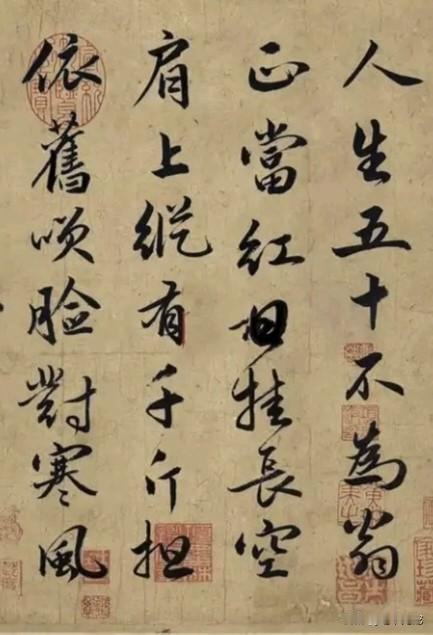 人生五十不為翁
正當紅日挂長空
肩上縱有千斤担
依舊咲脸對寒風